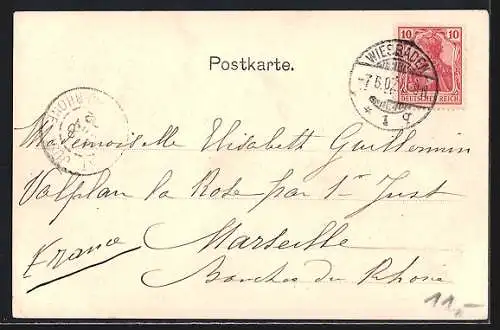 10 10
DEUTSCHES REICH
WIESBADEN
7.6.02
* 1 d
Postkarte.
Mademoiselle Elisabeth Guillermin
Valplan la Rose par St Just
Marseille
France
Bouches du Rhône
11,-